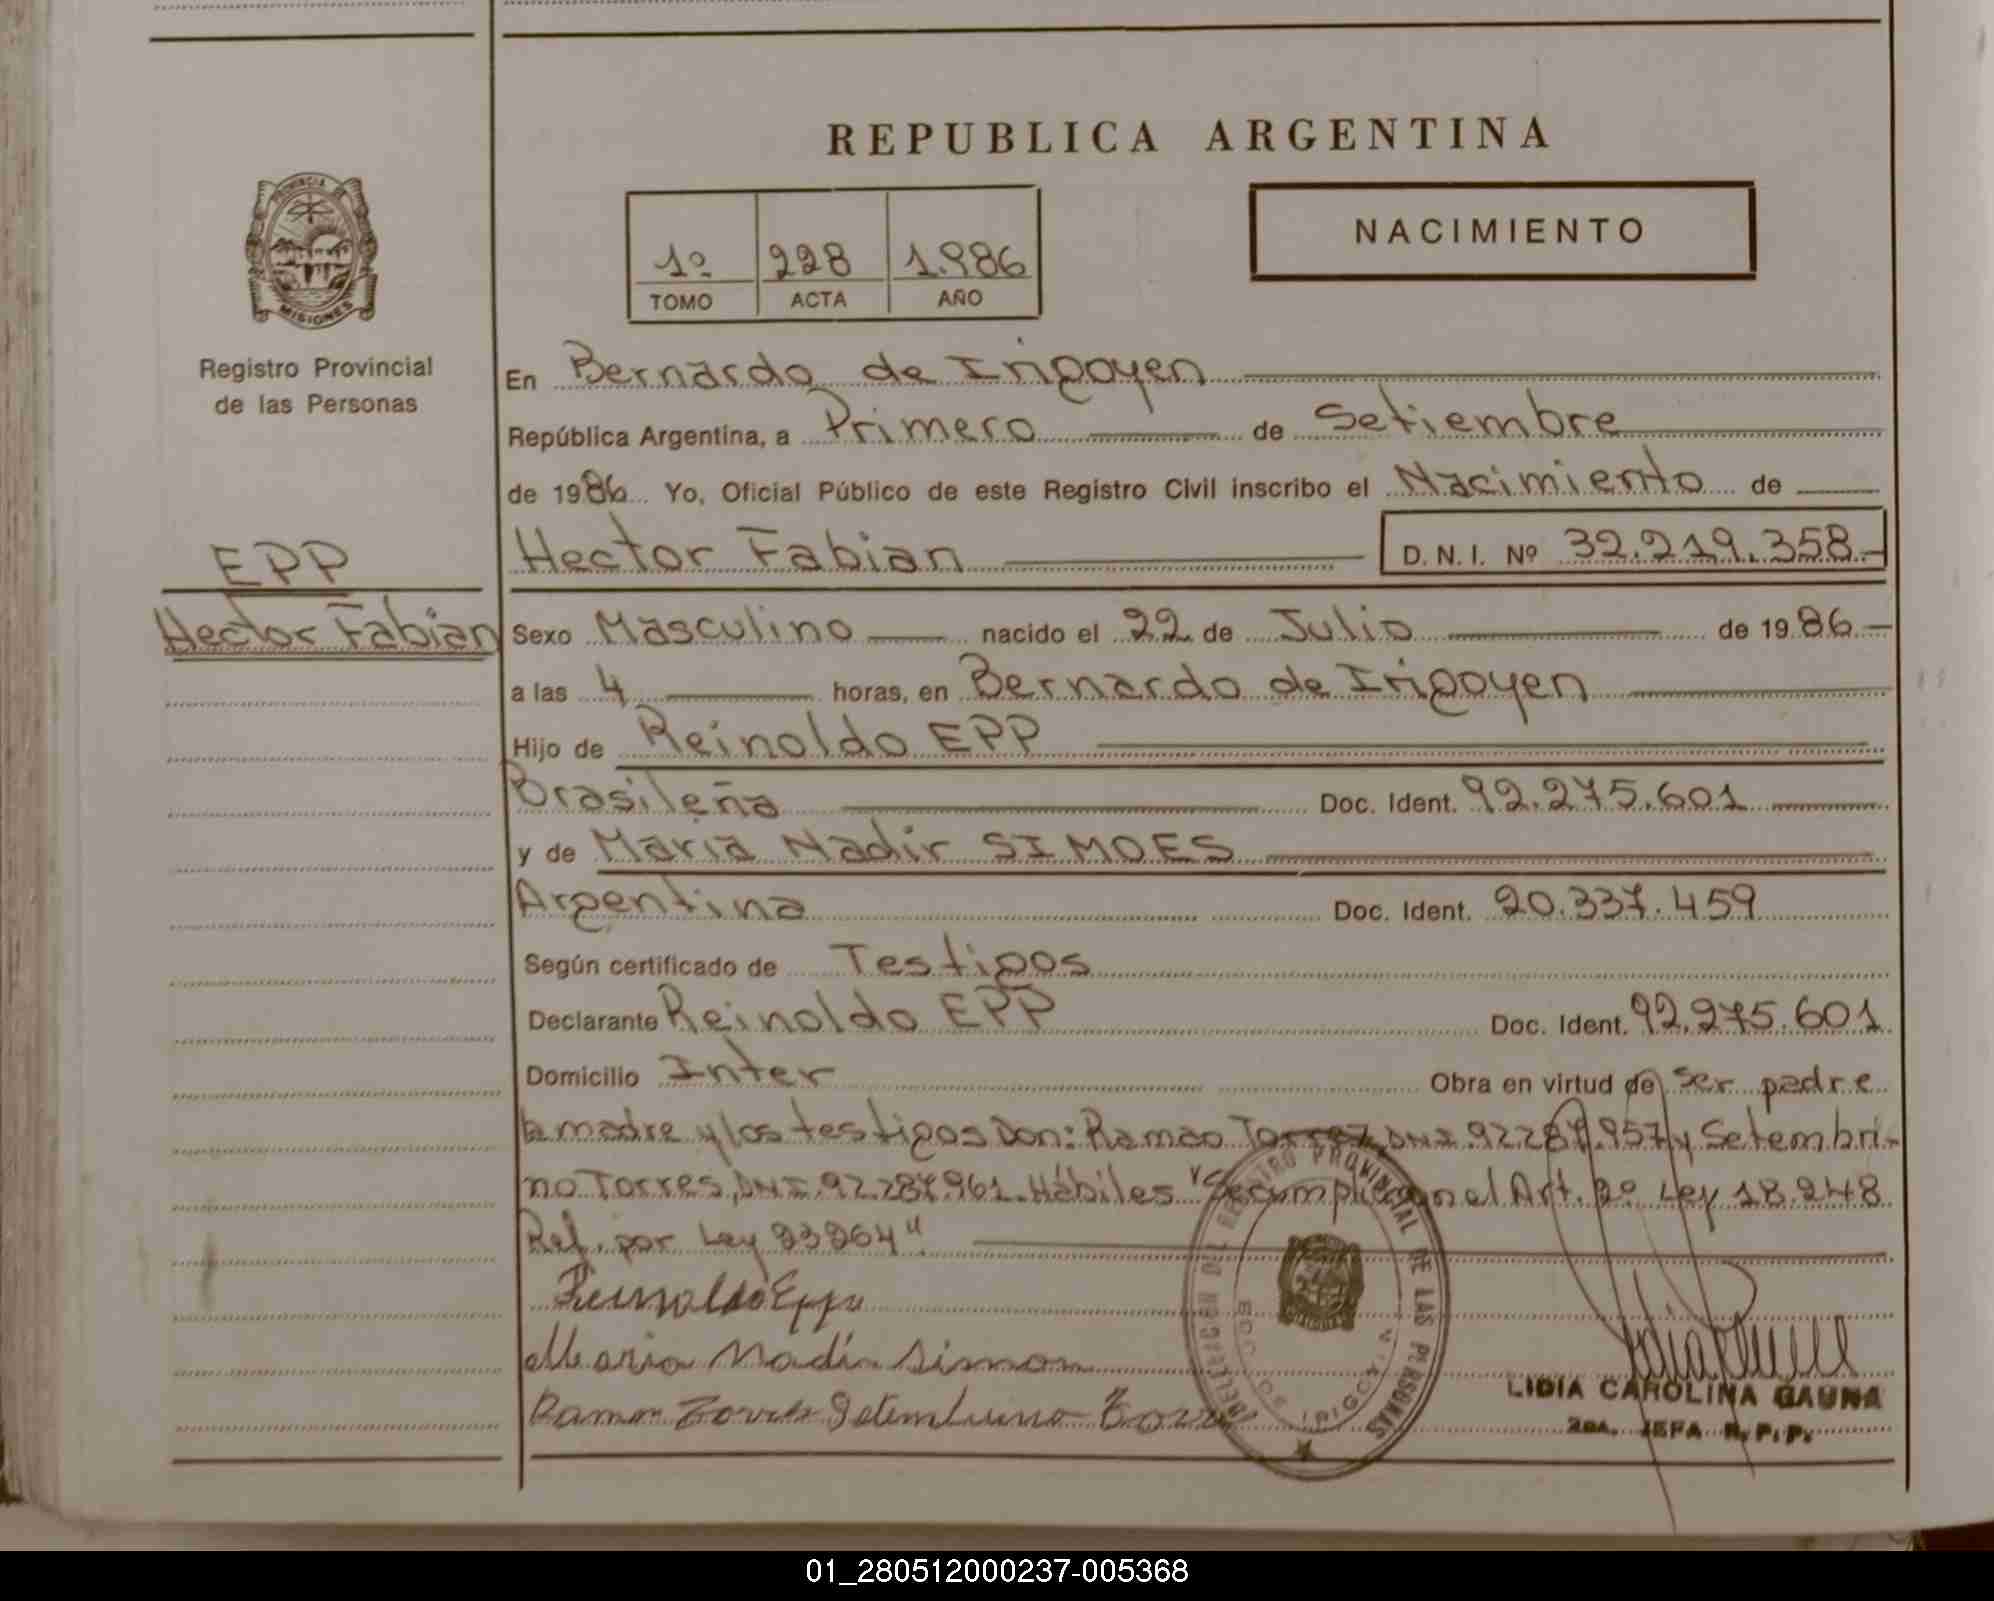 REPUBLICA ARGENTINA
NACIMIENTO
1º 228 1.986
TOMO ACTA AÑO
PROVINCIA DE
MISIONES
Registro Provincial
de las Personas
EPP
Hector Fabian
En Bernardo de Irigoyen
República Argentina, a Primero de Setiembre
de 1986 Yo, Oficial Público de este Registro Civil inscribo el Nacimiento de
Hector Fabian D.N.I. Nº 32.219.358.-
Sexo Masculino nacido el 22 de Julio de 1986.-
a las 4 horas, en Bernardo de Irigoyen
Hijo de Reinoldo EPP
Brasileña Doc. Ident. 92.275.601
y de Maria Nadir SIMOES
Argentina Doc. Ident. 20.337.459
Según certificado de Testigos
Declarante Reinoldo EPP Doc. Ident. 92.275.601
Domicilio Inter Obra en virtud de Ser padre
la madre y los testigos Don: Ramao Torrez, DNI.92.287.957 y Setembri-
no Torres, DNI.92.287.961. Hábiles "Se cumplio con el Art. 2º Ley 18.248
Ref. por Ley 23264"
Reinoldo Epp
Maria Nadir
DELEGACION DEL REGISTRO PROVINCIAL DE LAS PERSONAS
BDO. DE IRIGOYEN
LIDIA CAROLINA GAUNA
2da. JEFA R.P.P.
01_280512000237-005368